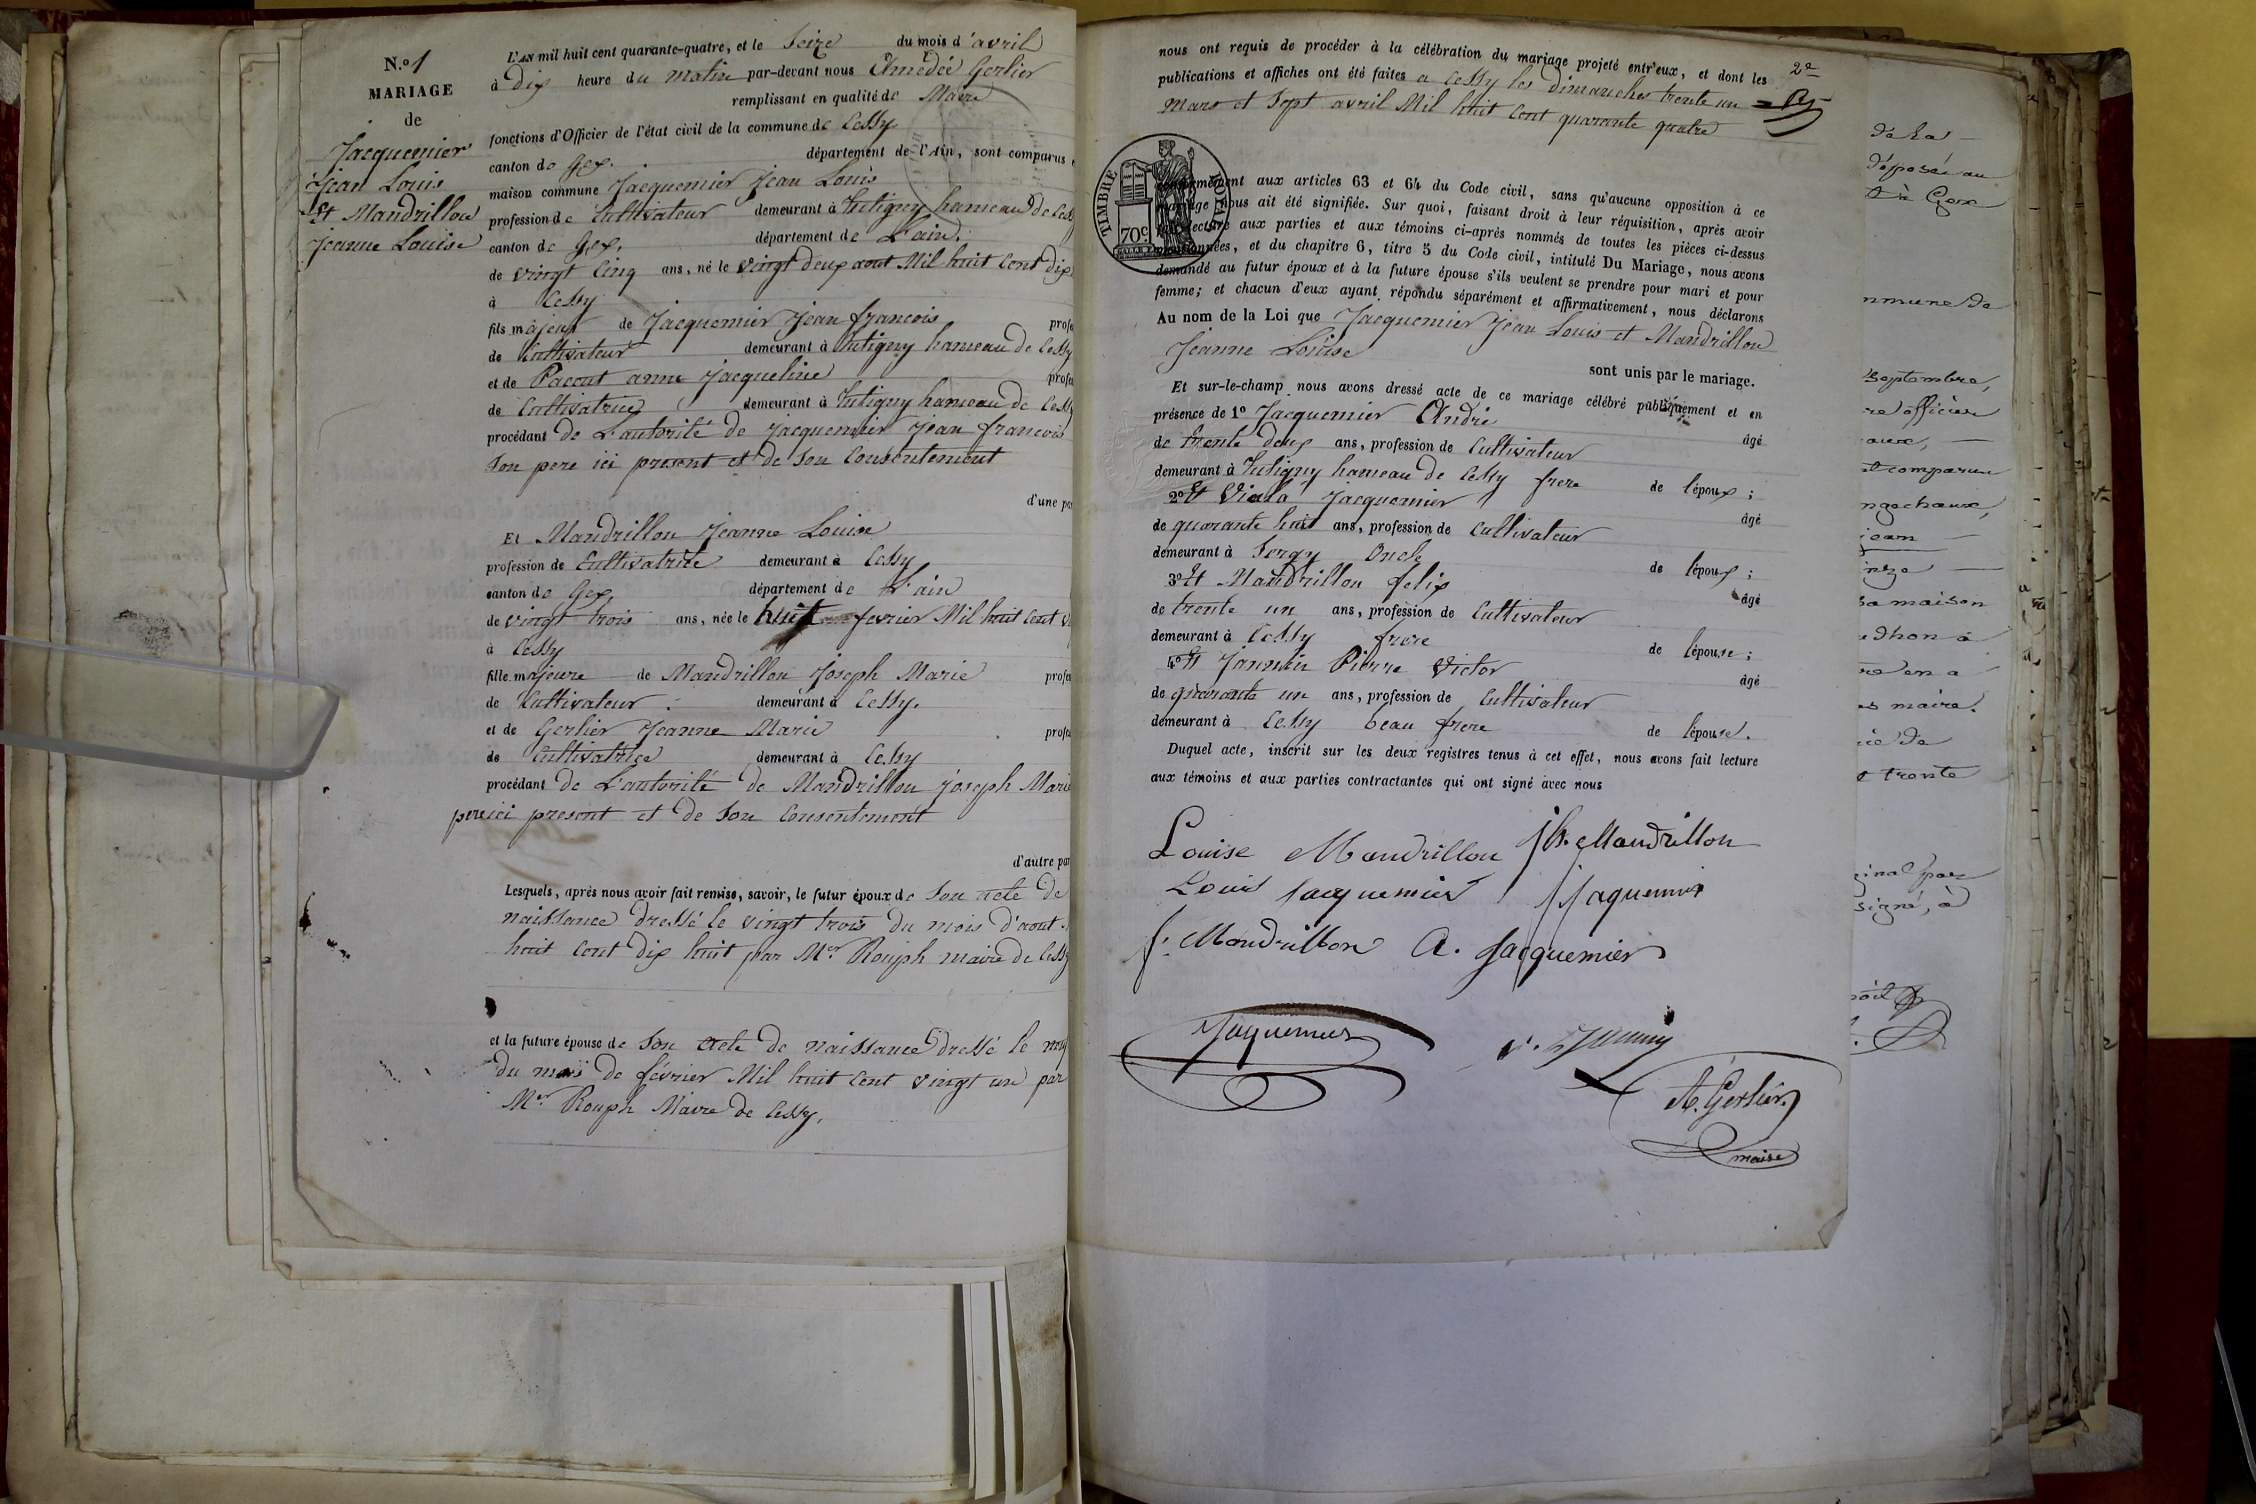 N.º 1
MARIAGE
de
Jacquemier
Jean Louis
Et Mandrillon
Jeanne Louise
L'AN mil huit cent quarante-quatre, et le Seize du mois d'avril
à dix heure du matin par-devant nous Amédée Gerlier
remplissant en qualité de Maire
fonctions d'Officier de l'état civil de la commune de Cessy
canton de Gex. département de l'Ain, sont comparus
maison commune Jacquemier Jean Louis
profession de Cultivateur demeurant à Tutigny hameau de Cessy
canton de Gex. département de L'ain.
de vingt Cinq ans, né le vingt deux aout Mil huit Cent dix
à Cessy
fils majeur de Jacquemier Jean françois profe
de Cultivateur demeurant à Tutigny hameau de Cessy
et de Paccut anne Jacqueline profe
de Cultivatrice demeurant à Tutigny hameau de Cessy
procédant de L'autorité de Jacquemier Jean francois
Son pere ici present et de Son Consentement
d'une pa
Et Mandrillon Jeanne Louise
profession de Cultivatrice demeurant à Cessy
canton de Gex. département de L'ain
de vingt trois ans, née le huit fevrier Mil huit Cent v
à Cessy
fille majeure de Mandrillon Joseph Marie profe
de Cultivateur demeurant à Cessy.
et de Gerlier Jeanne Marie profe
de Cultivatrice demeurant à Cessy
procédant de L'autorité de Mandrillon Joseph Marie
pere ici present et de Son Consentement
d'autre par
Lesquels, après nous avoir fait remise, savoir, le futur époux de Son acte de
naissance dressé le vingt trois du mois d'aout
huit Cent dix huit par Mer Rouph maire de Cessy
et la future épouse de Son acte de naissance dressé le
du mois de février Mil huit Cent vingt un par
Mer Rouph Maire de Cessy.
nous ont requis de procéder à la célébration du mariage projeté entr'eux, et dont les
publications et affiches ont été faites a Cessy les dimanches trente un
mars et Sept avril Mil huit Cent quarante quatre
2e
TIMBRE ROYAL
70c
conformément aux articles 63 et 64 du Code civil, sans qu'aucune opposition à ce
mariage nous ait été signifiée. Sur quoi, faisant droit à leur réquisition, après avoir
fait lecture aux parties et aux témoins ci-après nommés de toutes les pièces ci-dessus
mentionnées, et du chapitre 6, titre 5 du Code civil, intitulé Du Mariage, nous avons
demandé au futur époux et à la future épouse s'ils veulent se prendre pour mari et pour
femme; et chacun d'eux ayant répondu séparément et affirmativement, nous déclarons
Au nom de la Loi que Jacquemier Jean Louis et Mandrillon
Jeanne Louise
sont unis par le mariage.
Et sur-le-champ nous avons dressé acte de ce mariage célébré publiquement et en
présence de 1º Jacquemier André
âgé
de trente deux ans, profession de Cultivateur
demeurant à Tutigny hameau de Cessy frere de l'époux ;
2º Et Viala Jacquemier
âgé
de quarante huit ans, profession de Cultivateur
demeurant à Sergy Oncle
de l'époux ;
3º Et Mandrillon felix
âgé
de trente un ans, profession de Cultivateur
demeurant à Cessy frere
de l'épouse ;
4º Et Jannin Pierre Victor
âgé
de quarante un ans, profession de Cultivateur
demeurant à Cessy beau frere de l'épouse.
Duquel acte, inscrit sur les deux registres tenus à cet effet, nous avons fait lecture
aux témoins et aux parties contractantes qui ont signé avec nous
Louise Mandrillon Jh. Mandrillon
Louis Jacquemier J Jaquemier
f. Mandrillon A. Jacquemier
Jaquemier
v. Jannin
A. Gerlier
maire
de la
déposé au
à Gex
mmune de
septembre,
re officier
comparus
ngechaux,
jean
sa maison
dhon à
es maire.
de
trente
ginal par
signé, à